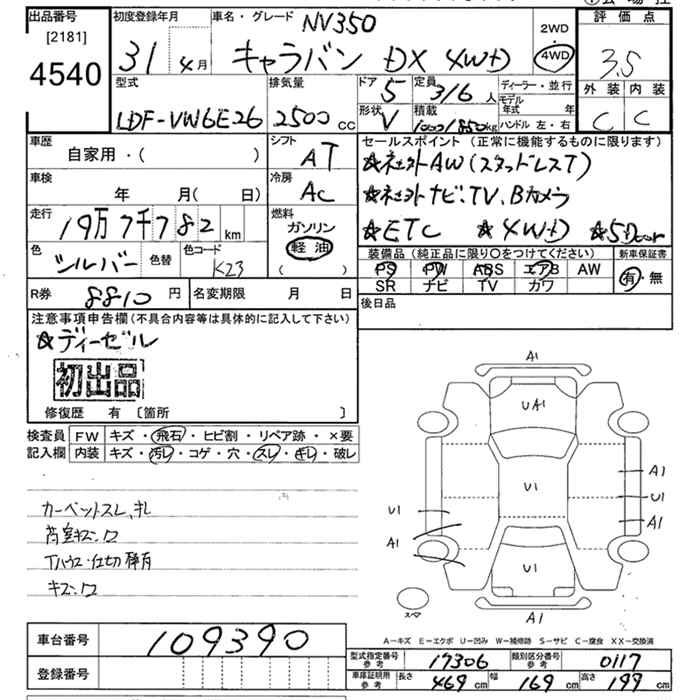 出品番号
[2181]
4540
初度登録年月
31 4月
車名・グレード NV350
キャラバン DX 4WD
2WD
4WD
評価点
3.5
外装 内装
C C
型式
LDF-VW6E26
排気量
2500 CC
ドア 5
定員 3/6 人
ディーラー・並行
モデル年式 年
形状 V
積載 1000/850kg
ハンドル 左・右
車歴
自家用・( )
シフト AT
車検
年 月( 日)
冷房 AC
走行 19万7千782km
燃料
ガソリン
軽油
( )
色 シルバー
色替
色コード K23
R券 8810 円
名変期限 月 日
セールスポイント(正常に機能するものに限ります)
☆社外AW(スタッドレスT)
☆社外ナビ、TV、Bカメラ
☆ETC ☆4WD ☆5Door
装備品(純正品に限り○をつけてください)
新車保証書
PS PW ABS エアB AW
SR ナビ TV カワ
有・無
後日品
注意事項申告欄(不具合内容等は具体的に記入して下さい)
☆ディーゼル
初出品
修復歴 有 〔箇所 〕
検査員 FW キズ・飛石・ヒビ割・リペア跡・×要
記入欄 内装 キズ・汚レ・コゲ・穴・スレ・キレ・破レ
カーペットスレ、キレ
荷室キズ・ワ
Tハウス・仕切
キズ・ワ
A1
UA1
A1
U1
U1
A1
U1
A1
U1
スペ
A1
A－キズ E－エクボ U－凹み W－補修跡 S－サビ C－腐食 XX－交換済
車台番号 109390
登録番号
型式指定番号 参考 17306
類別区分番号 参考 0117
車庫証明所 参考 長さ 469cm 幅 169cm 高さ 199cm